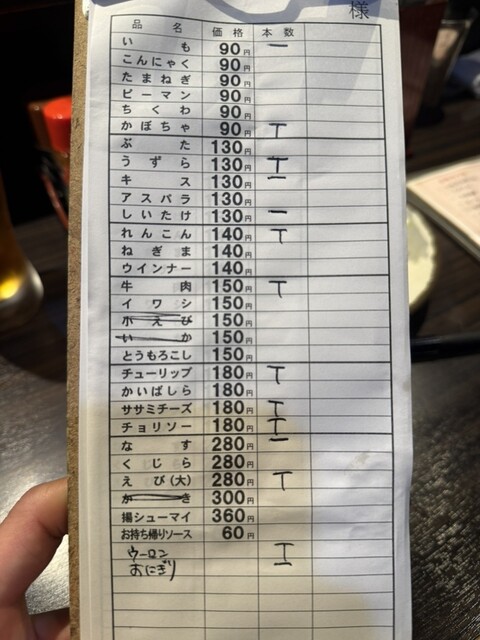 様
品名 価格 本数
いも 90円 一
こんにゃく 90円
たまねぎ 90円
ピーマン 90円
ちくわ 90円
かぼちゃ 90円 T
ぶた 130円
うずら 130円 T
キス 130円 一
アスパラ 130円
しいたけ 130円 一
れんこん 140円 T
ねぎま 140円
ウインナー 140円
牛肉 150円 T
イワシ 150円
小えび 150円
いか 150円
とうもろこし 150円
チューリップ 180円 T
かいばしら 180円
ササミチーズ 180円 T
チョリソー 180円 T
なす 280円 一
くじら 280円
えび(大) 280円 T
かき 300円
揚シューマイ 360円
お持ち帰りソース 60円
ウーロン T
おにぎり 一